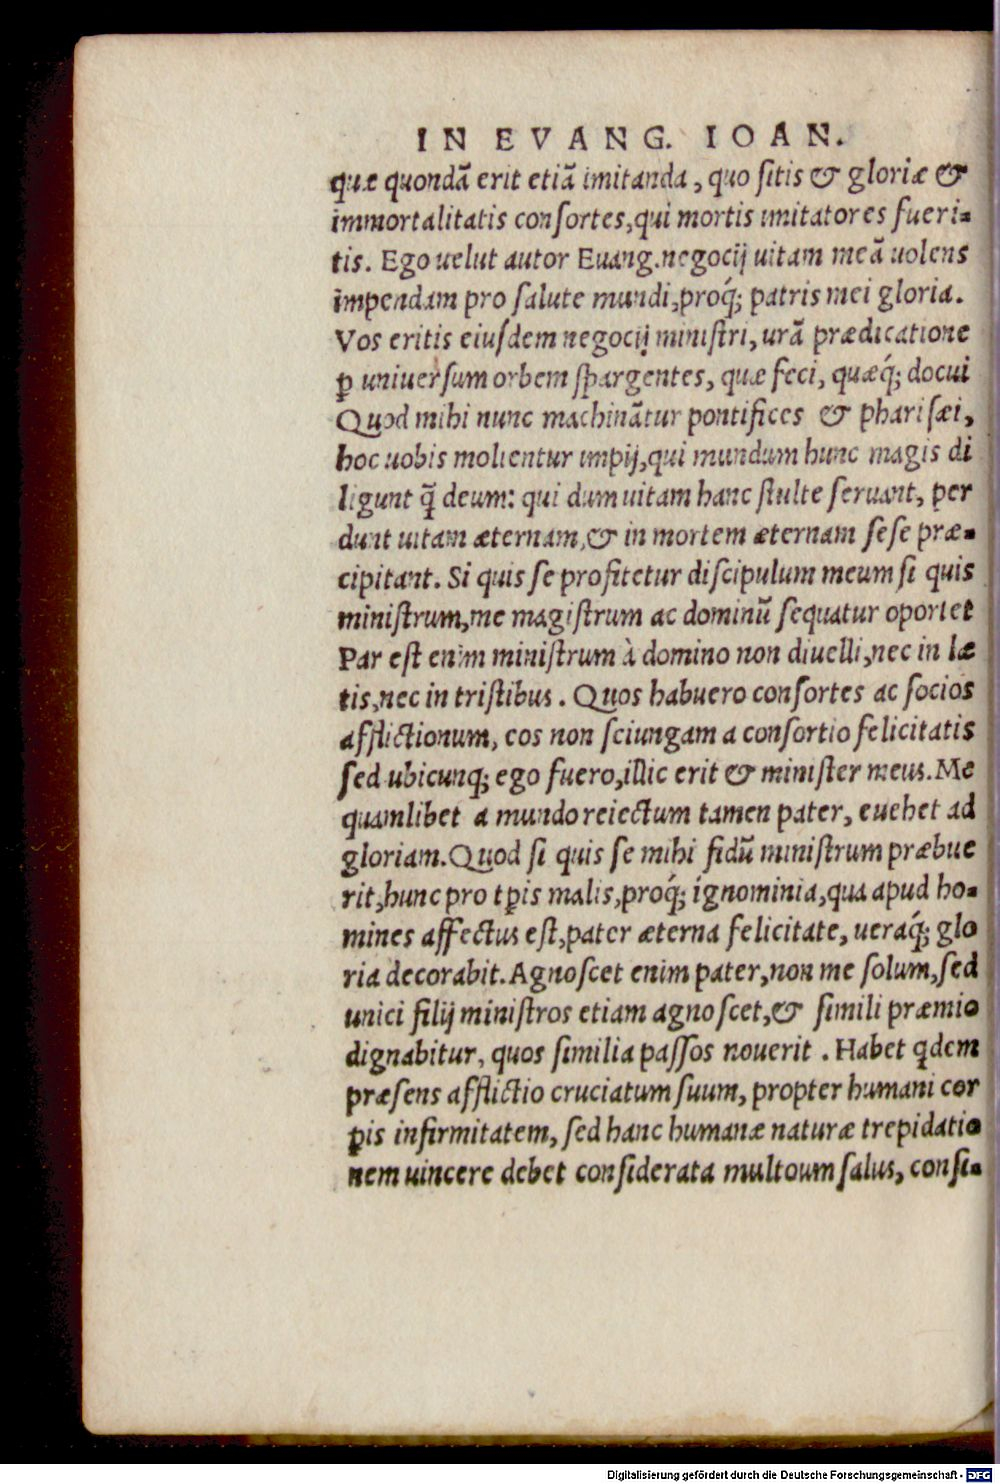 IN EVANG. IOAN.
quæ quondã erit etiã imitanda, quo ſitis & gloriæ &
immortalitatis conſortes, qui mortis imitatores fueri-
tis. Ego uelut autor Euang. negocij uitam meã uolens
impendam pro ſalute mundi, proq́; patris mei gloria.
Vos eritis eiuſdem negocij miniſtri, urã prædicatione
ꝑ uniuerſum orbem ſpargentes, quæ feci, quæq́; docui
Quod mihi nunc machinãtur pontifices & phariſæi,
hoc uobis molientur impij, qui mundum hunc magis di
ligunt q̃ deum: qui dum uitam hanc ſtulte ſeruant, per
dunt uitam æternam, & in mortem æternam ſeſe præ-
cipitant. Si quis ſe profitetur diſcipulum meum ſi quis
miniſtrum, me magiſtrum ac dominũ ſequatur oportet
Par eſt enim miniſtrum à domino non diuelli, nec in læ
tis, nec in triſtibus. Quos habuero conſortes ac ſocios
afflictionum, eos non ſciungam a conſortio felicitatis
ſed ubicunq; ego fuero, illic erit & miniſter meus. Me
quamlibet a mundo reiectum tamen pater, euehet ad
gloriam. Quod ſi quis ſe mihi fidũ miniſtrum præbue
rit, hunc pro tꝑis malis, proq́; ignominia, qua apud ho-
mines affectus eſt, pater æterna felicitate, ueraq́; glo
ria decorabit. Agnoſcet enim pater, non me ſolum, ſed
unici filij miniſtros etiam agnoſcet, & ſimili præmio
dignabitur, quos ſimilia paſſos nouerit. Habet qdem
præſens afflictio cruciatum ſuum, propter humani cor
ꝑis infirmitatem, ſed hanc humanæ naturæ trepidatio
nem uincere debet conſiderata multoum ſalus, conſi-
Digitalisierung gefördert durch die Deutsche Forschungsgemeinschaft - DFG